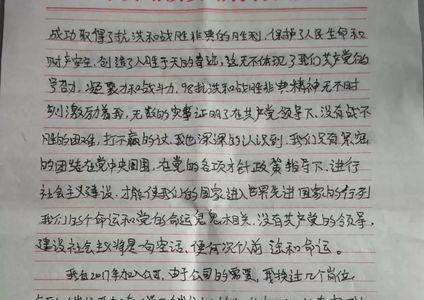 成功取得了抗洪和战胜非典的胜利，保护了人民生命和
财产安全，创造了人胜于天的奇迹，这无不体现了我们共产党的
号召力、凝聚力和战斗力，98抗洪和战胜非典精神无不时
刻激励着我，无数的实事证明了在共产党领导下，没有战不
胜的困难，打不赢的仗，我也深深的认识到，我们只有紧密
的团结在党中央周围，在党的各项方针政策指导下，进行
社会主义建设，才能使我们的国家进入世界先进国家的行列
我们的个命运和党的命运息息相关，没有共产党的领导，
建设社会主义将是句空话，便何况个人前途和命运。
我自2017年加入公司，由于公司的需要，我换过几个岗位